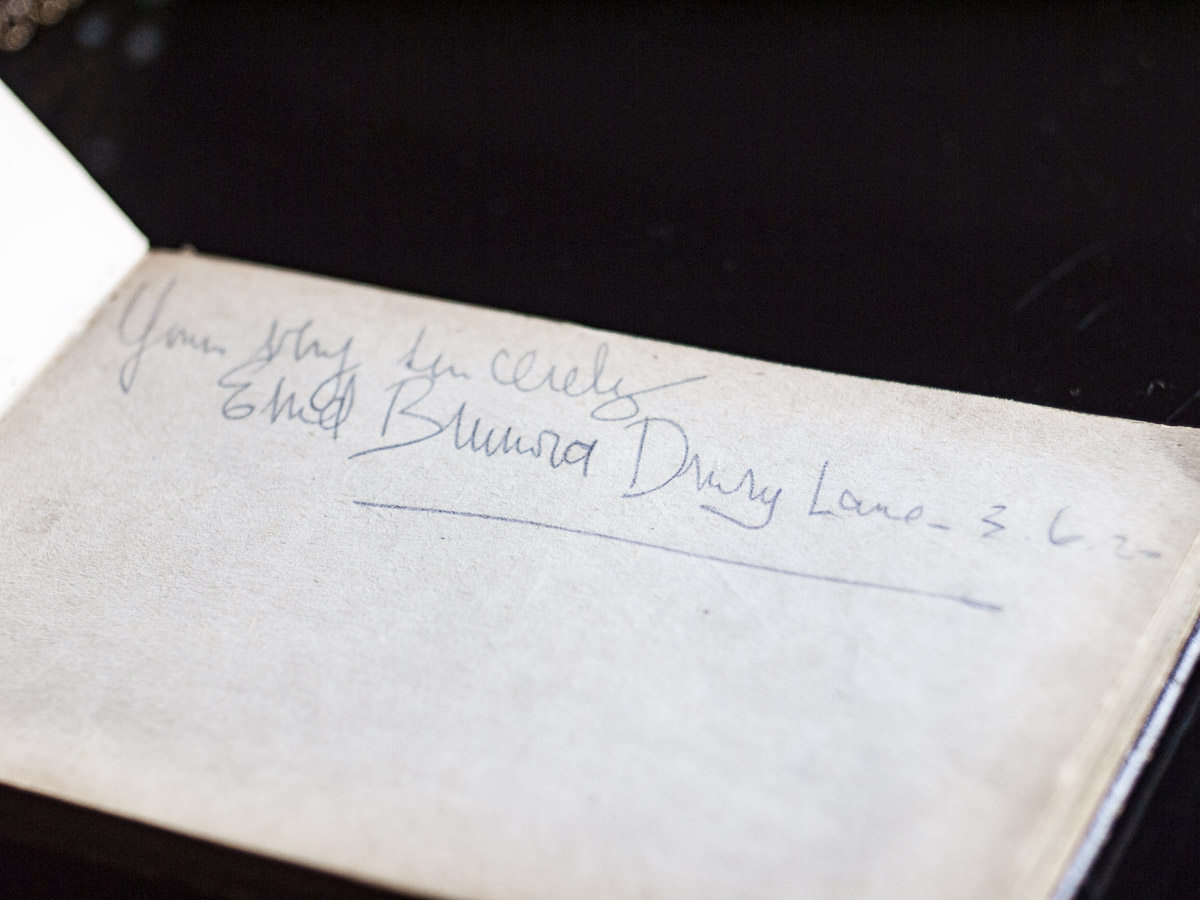 Yours very sincerely
Enid Drury Lane - 3.6.2